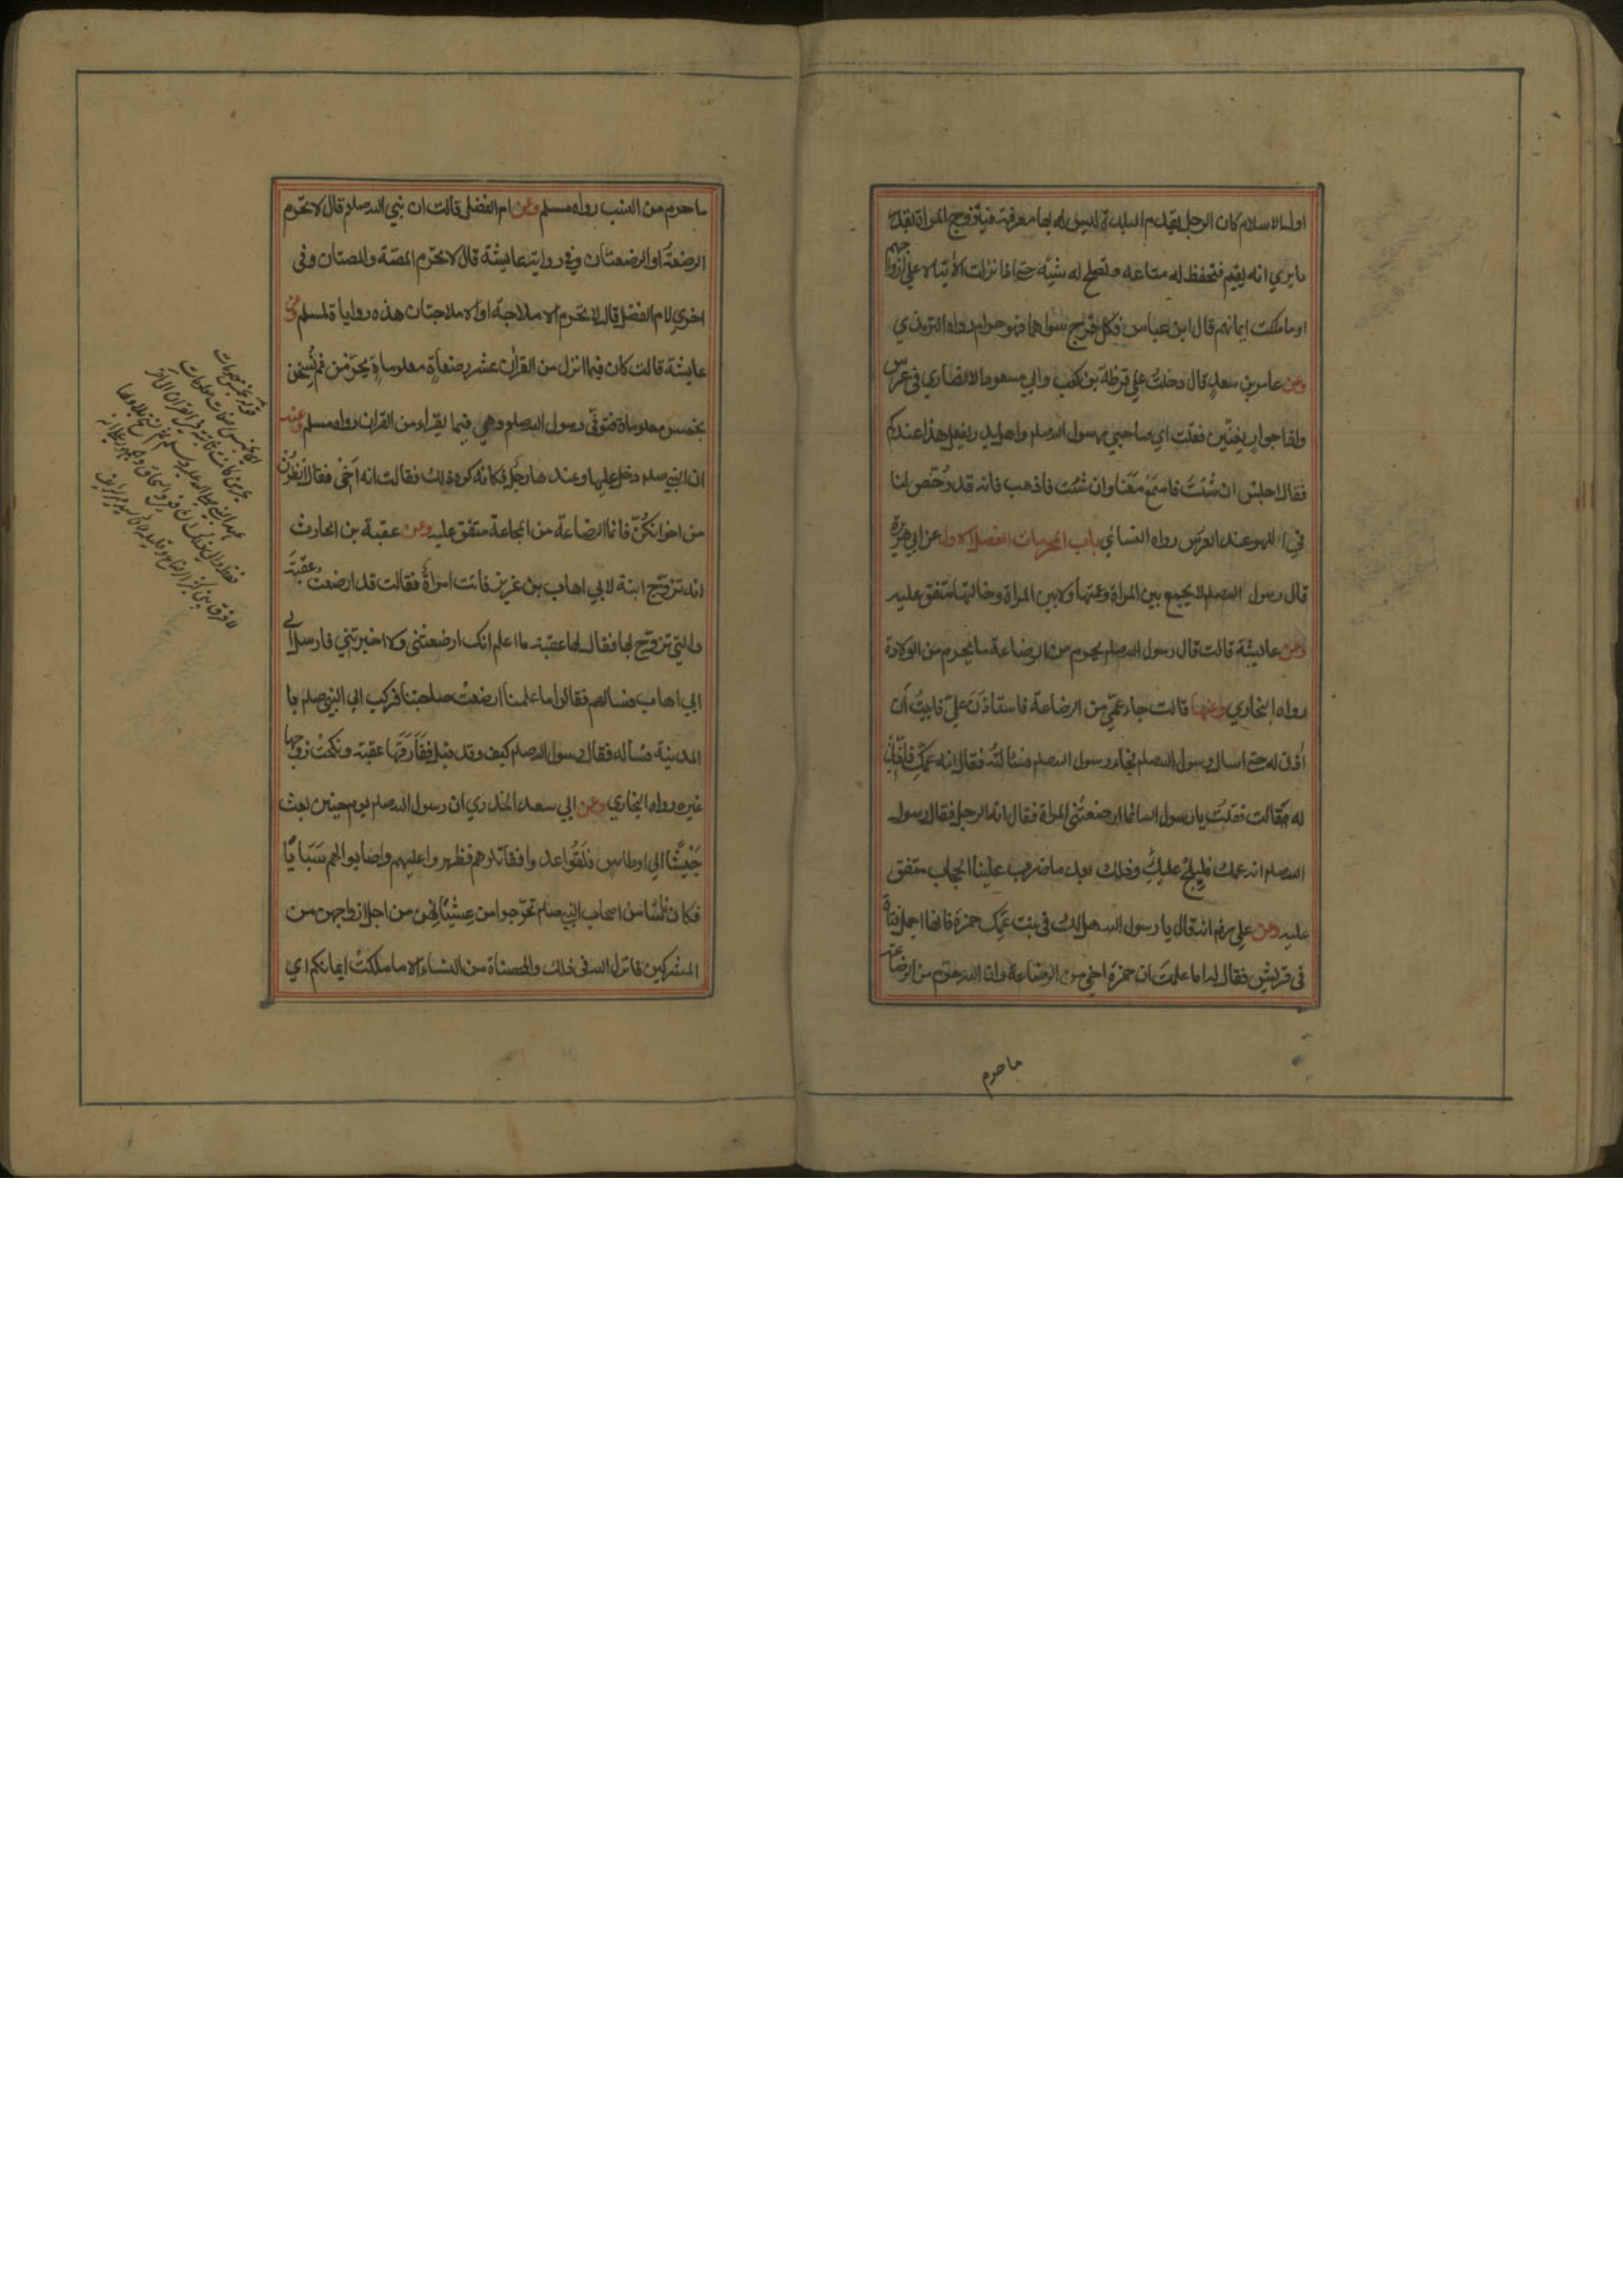 اول الاسلام كان الرجل يقدم البلدة ليس له بها معرفة فيتزوج المراة بقدر
ما يري انه يقيم فتحفظ له متاعه وتصلح له شيئه حتي اذا نزلت الآية الا علي ازواجهم
او ما ملكت ايمانهم قال ابن عباس فكل فرج سواهما فهو حرام رواه الترمذي
وعن عامر بن سعد قال دخلت علي قرظة بن كعب وابي مسعود الانصاري في عرس
واذا جوار يغنين فقلت اي صاحبي رسول الله صلعم واهل بدر يفعل هذا عندكم
فقالا اجلس ان شئت فاسمع معنا وان شئت فاذهب فانه قد رخص لنا
في اللهو عند العرس رواه النسائي باب المحرمات الفصل الاول عن ابي هريرة
قال رسول الله صلعم لا يجمع بين المراة وعمتها ولا بين المراة وخالتها متفق عليه
وعن عايشة قالت قال رسول الله صلعم يحرم من الرضاعة ما يحرم من الولادة
رواه البخاري وعنها قالت جاء عمي من الرضاعة فاستاذن علي فابيت ان
اذن له حتي اسال رسول الله صلعم فجاء رسول الله صلعم فسالته فقال انه عمك فاذني
له قالت فقلت يا رسول الله انما ارضعتني المراة فقال انه الرجل فقال رسول
الله صلعم انه عمك فليلج عليك وذلك بعد ما ضرب علينا الحجاب متفق
عليه وعن علي رضـ انه قال يا رسول الله هل لك في بنت عمك حمزة فانها اجمل فتاة
في قريش فقال له اما علمت ان حمزة اخي من الرضاعة وان الله حرم من الرضاعة
ما حرم
ما حرم من النسب رواه مسلم وعن ام الفضل قالت ان نبي الله صلعم قال لا تحرم
الرضعة او الرضعتان وفي رواية عايشة قال لا تحرم المصة والمصتان وفي
اخري لام الفضل قال لا تحرم الاملاجة او الاملاجتان هذه روايات لمسلم وعن
عايشة قالت كان فيما انزل من القرآن عشر رضعاة معلوماة يحرمن ثم نسخن
بخمس معلوماة فتوفي رسول الله صلعم وهي فيما يقراء من القران رواه مسلم وعنها
ان النبي صلعم دخل عليها وعندها رجل فكانه كره ذلك فقالت انه اخي فقال انظرن
من اخوانكن فانما الرضاعة من المجاعة متفق عليه وعن عقبة بن الحارث
انه تزوج ابنة لابي اهاب بن عزيز فاتت امراة فقالت قد ارضعت عقبة
والتي تزوج بها فقال لها عقبة ما اعلم انك ارضعتني ولا اخبرتني فارسل الي
ابي اهاب فسالهم فقالوا ما علمنا ارضعت صاحبتنا فركب الي النبي صلعم با
المدينة فساله فقال رسول الله صلعم كيف وقد قيل ففارقها عقبة ونكحت زوجا
غيره رواه البخاري وعن ابي سعد الخدري ان رسول الله صلعم يوم حنين بعث
جيشا الي اوطاس فلقوا عدوا فقاتلوهم فظهروا عليهم واصابوا لهم سبايا
فكان ناسا من اصحاب النبي صلعم تحرجوا من غشيانهن من اجل ازواجهن من
المشركين فانزل الله في ذلك والمحصناة من النساء الا ما ملكت ايمانكم اي